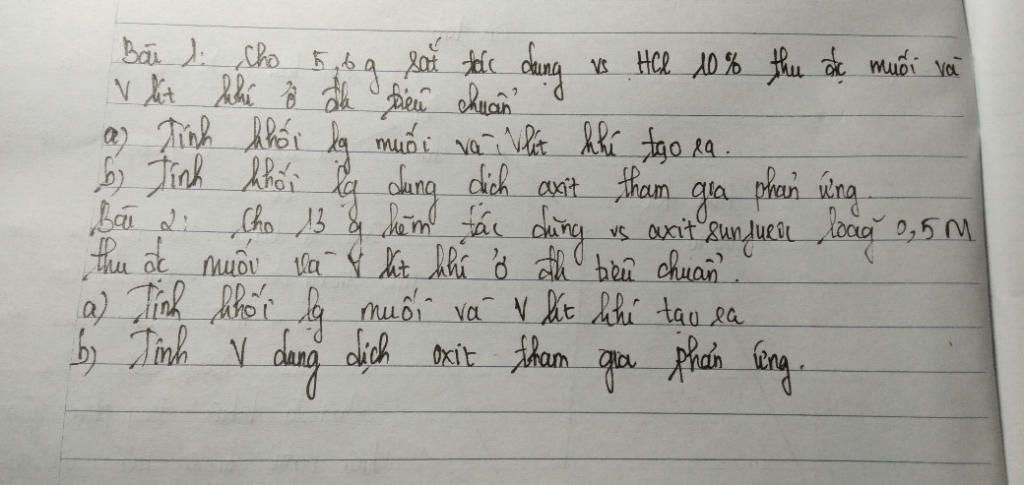 Bài 1: Cho 5,6 g sắt tác dụng vs HCl 10% thu đc muối và
V lít khí ở đk tiêu chuẩn
a) Tính khối lg muối và V lít khí tạo ra.
b) Tính khối lg dung dịch axit tham gia phản ứng.
Bài 2: Cho 13 g kẽm tác dũng vs axit sunfuric loãg 0,5M
thu đc muối và V lít khí ở đk tiêu chuẩn.
a) Tính khối lg muối và V lít khí tạo ra
b) Tính V dung dịch axit tham gia phản ứng.